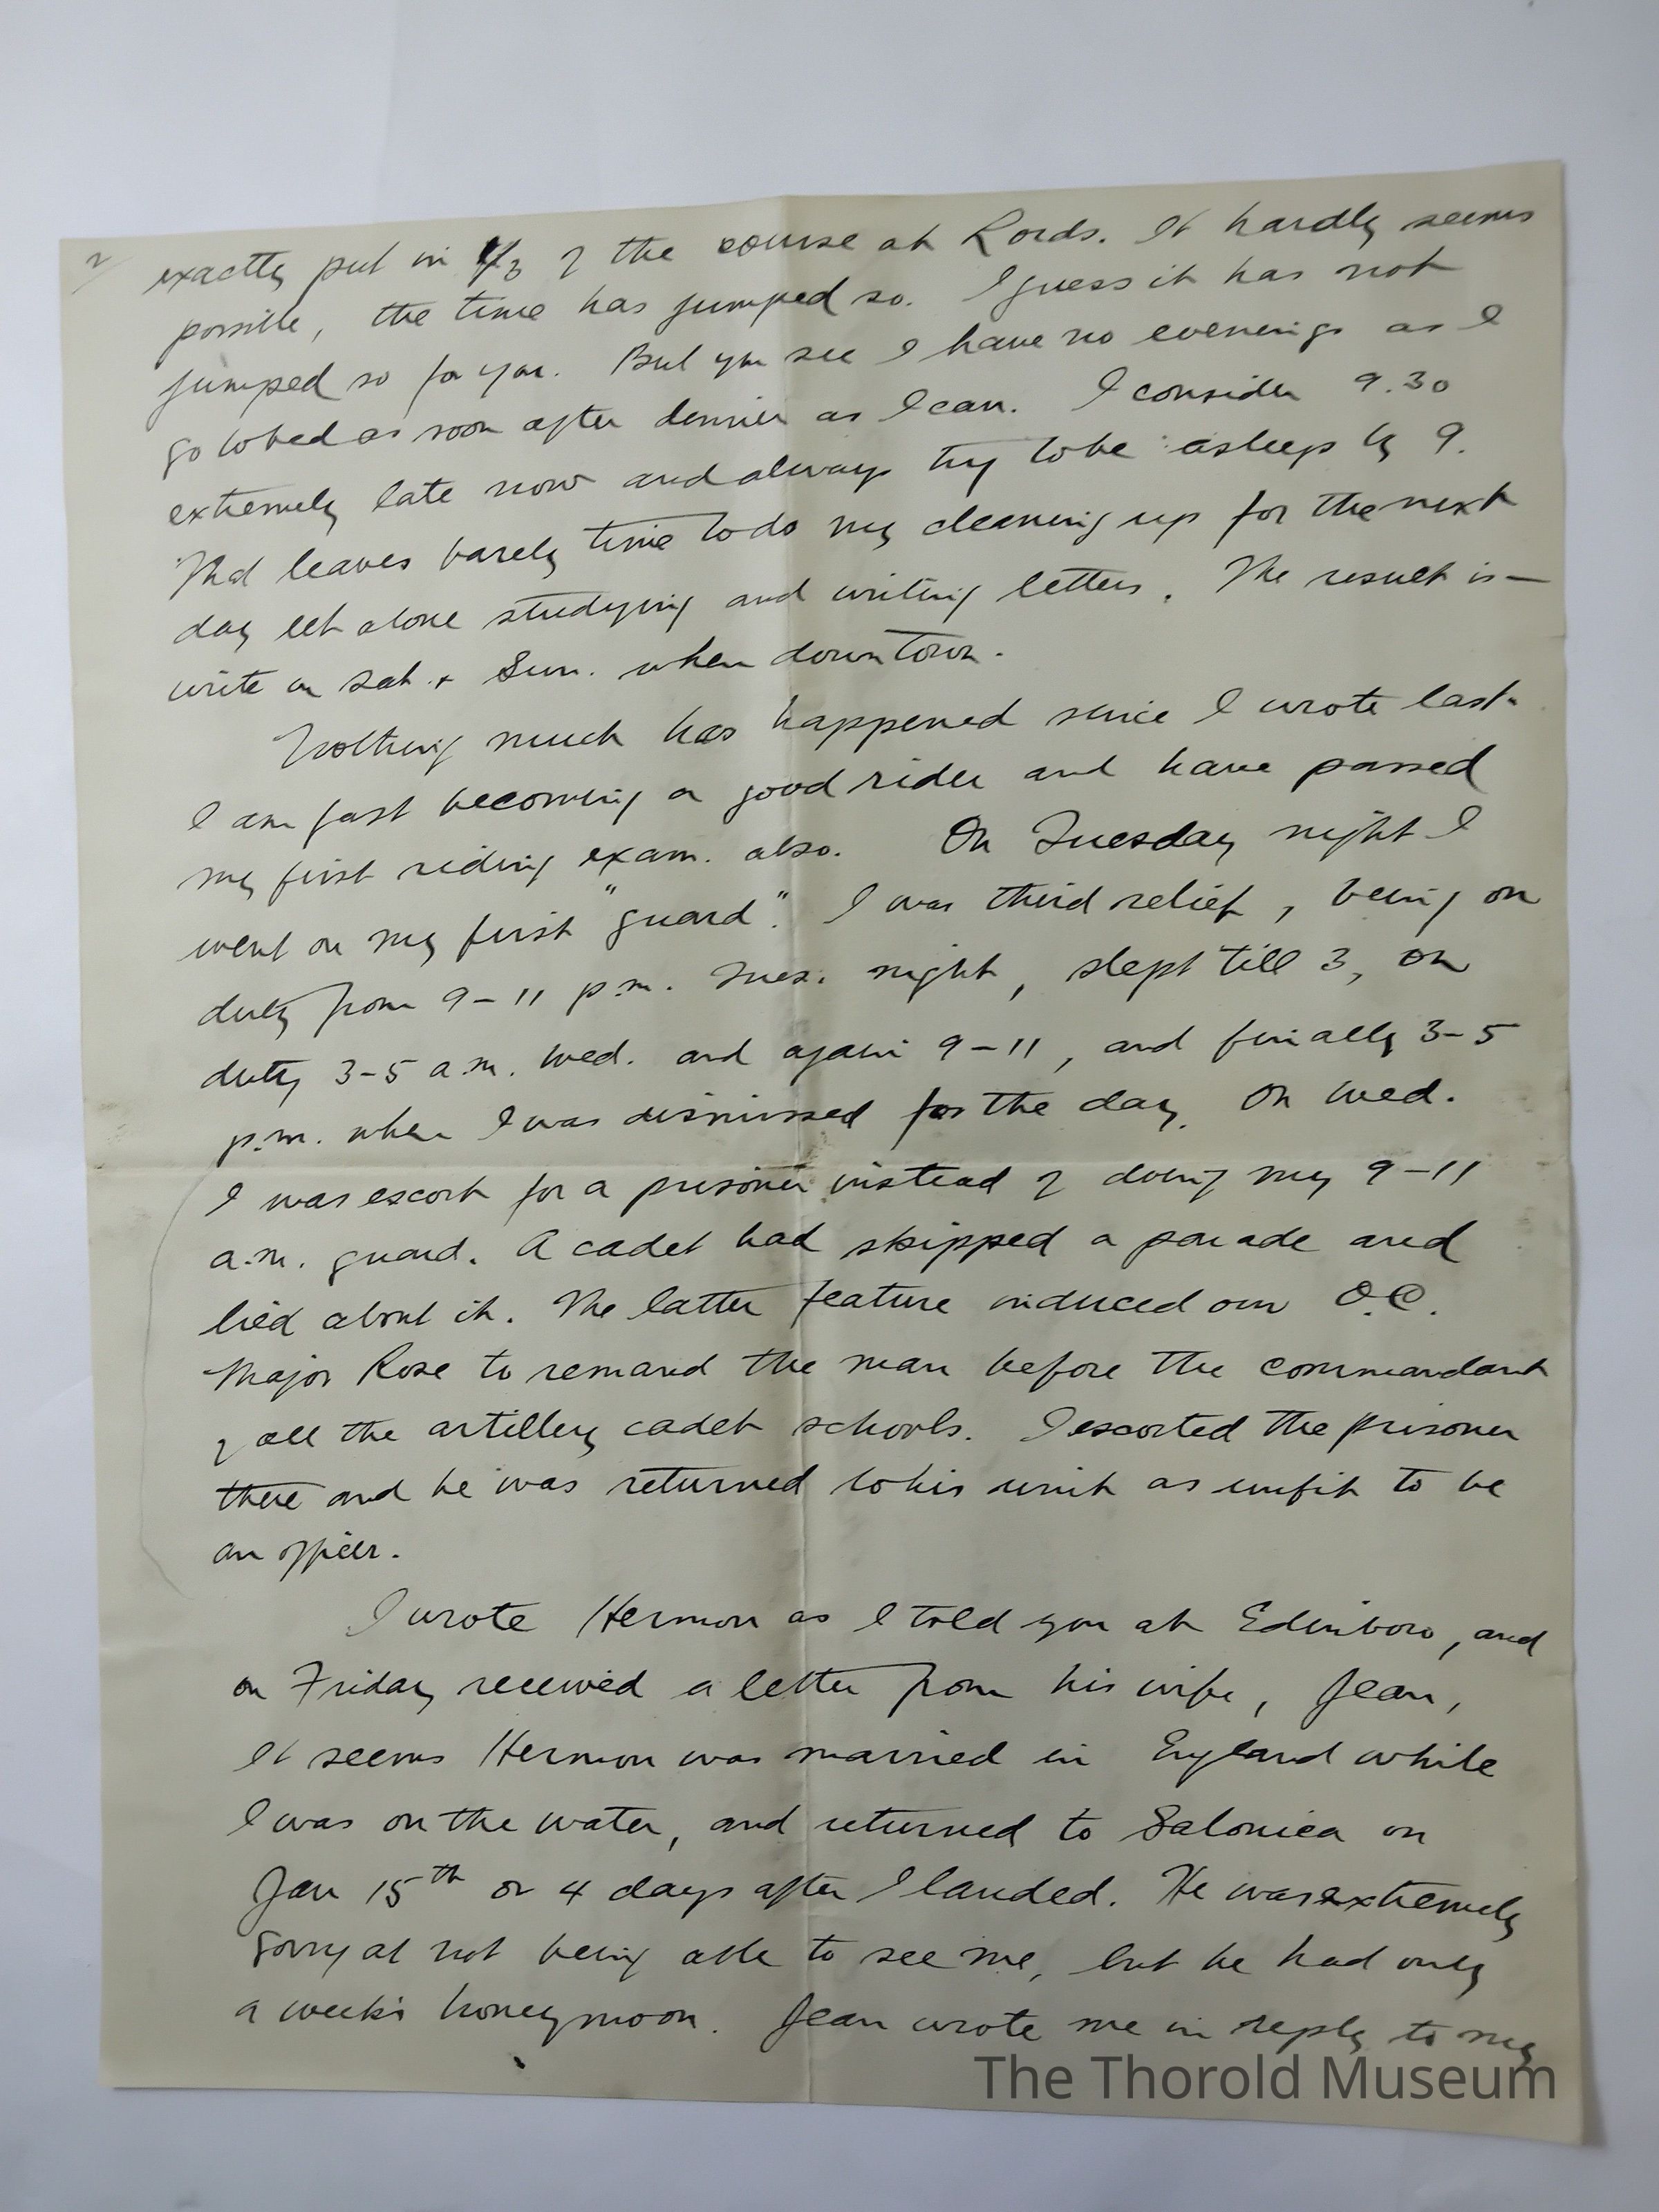 2/
exactly put in 1/3 of the course at Lords. It hardly seems
possible, the time has jumped so. I guess it has not
jumped so for you. But you see I have no evenings as I
go to bed as soon after dinner as I can. I consider 9.30
extremely late now and always try to be asleep by 9.
That leaves barely time to do my cleaning up for the next
day let alone studying and writing letters. The result is —
write on Sat. + Sun. when down town.
Nothing much has happened since I wrote last.
I am fast becoming a good rider and have passed
my first riding exam. also. On Tuesday night I
went on my first "guard". I was third relief, being on
duty from 9-11 p.m. Tues. night, slept till 3, on
duty 3-5 a.m. Wed. and again 9-11, and finally 3-5
p.m. when I was dismissed for the day. On Wed.
I was escort for a prisoner instead of doing my 9-11
a.m. guard. A cadet had skipped a parade and
lied about it. The latter feature induced our O.C.
Major Rose to remand the man before the commandant
of all the artillery cadet schools. I escorted the prisoner
there and he was returned to his unit as unfit to be
an officer.
I wrote Hermon as I told you at Edinboro, and
on Friday received a letter from his wife, Jean,
It seems Hermon was married in England while
I was on the water, and returned to Salonica on
Jan 15th or 4 days after I landed. He was extremely
sorry at not being able to see me, but he had only
a week's honeymoon. Jean wrote me in reply to my
The Thorold Museum